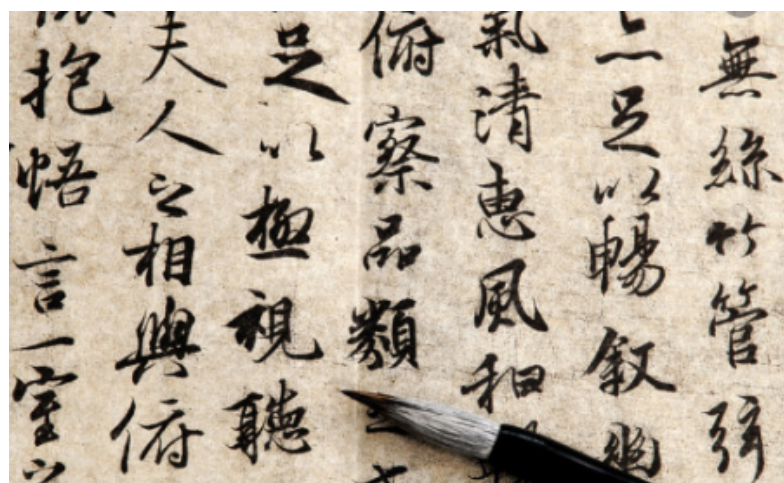 無絲竹管弦
亦足以暢叙幽
氣清惠風和
俯察品類之
足以極視聽
夫人之相與俯
抱悟言一室之